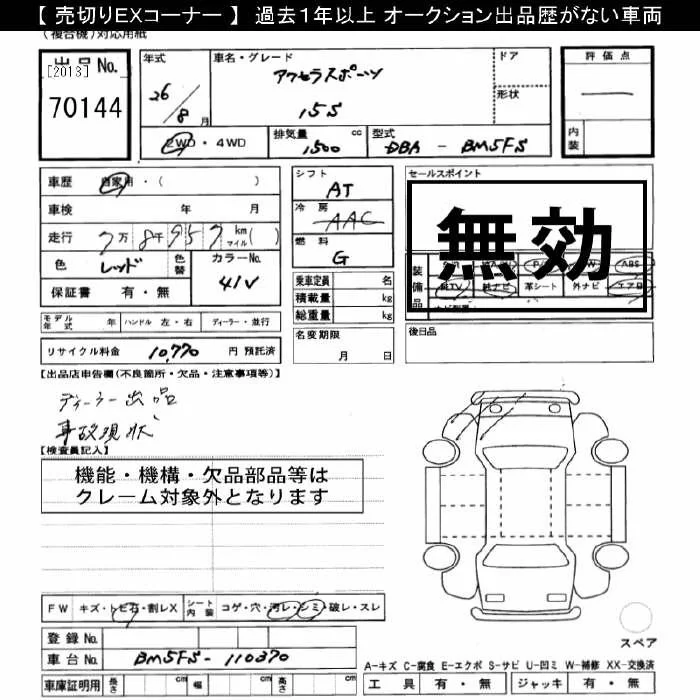 【 売切りEXコーナー 】 過去１年以上 オークション出品歴がない車両
(複合機)対応用紙
出品No. [2013] 70144
年式 26/8月
車名・グレード アクセラスポーツ 15S
ドア
形状
評価点 —
内装
2WD・4WD
排気量 1500 cc
型式 DBA - BM5FS
車歴 自家用・( )
車検 年 月
走行 7万8千957 km マイル( )
色 レッド
色替
カラーNo. 41V
保証書 有・無
シフト AT
冷房 AAC
燃料 G
乗車定員 名
積載量 kg
総重量 kg
セールスポイント
無効
装備品
ABS
純TV 純ナビ 革シート 外ナビ エアB
モデル年式 年 ハンドル 左・右 ディーラー・並行
名変期限 月 日
後日品
リサイクル料金 10,770 円 預託済
【出品店申告欄(不良箇所・欠品・注意事項等)】
ディーラー出品
事故現状
【検査員記入】
機能・機構・欠品部品等は
クレーム対象外となります
FW キズ・トビ石・割レX シート内装 コゲ・穴・汚レ・シミ・破レ・スレ
登録No.
車台No. BM5FS-110370
車庫証明用 長さ cm 幅 cm 高さ cm
スペア
A-キズ C-腐食 E-エクボ S-サビ U-凹ミ W-補修 XX-交換済
工具 有・無 ジャッキ 有・無